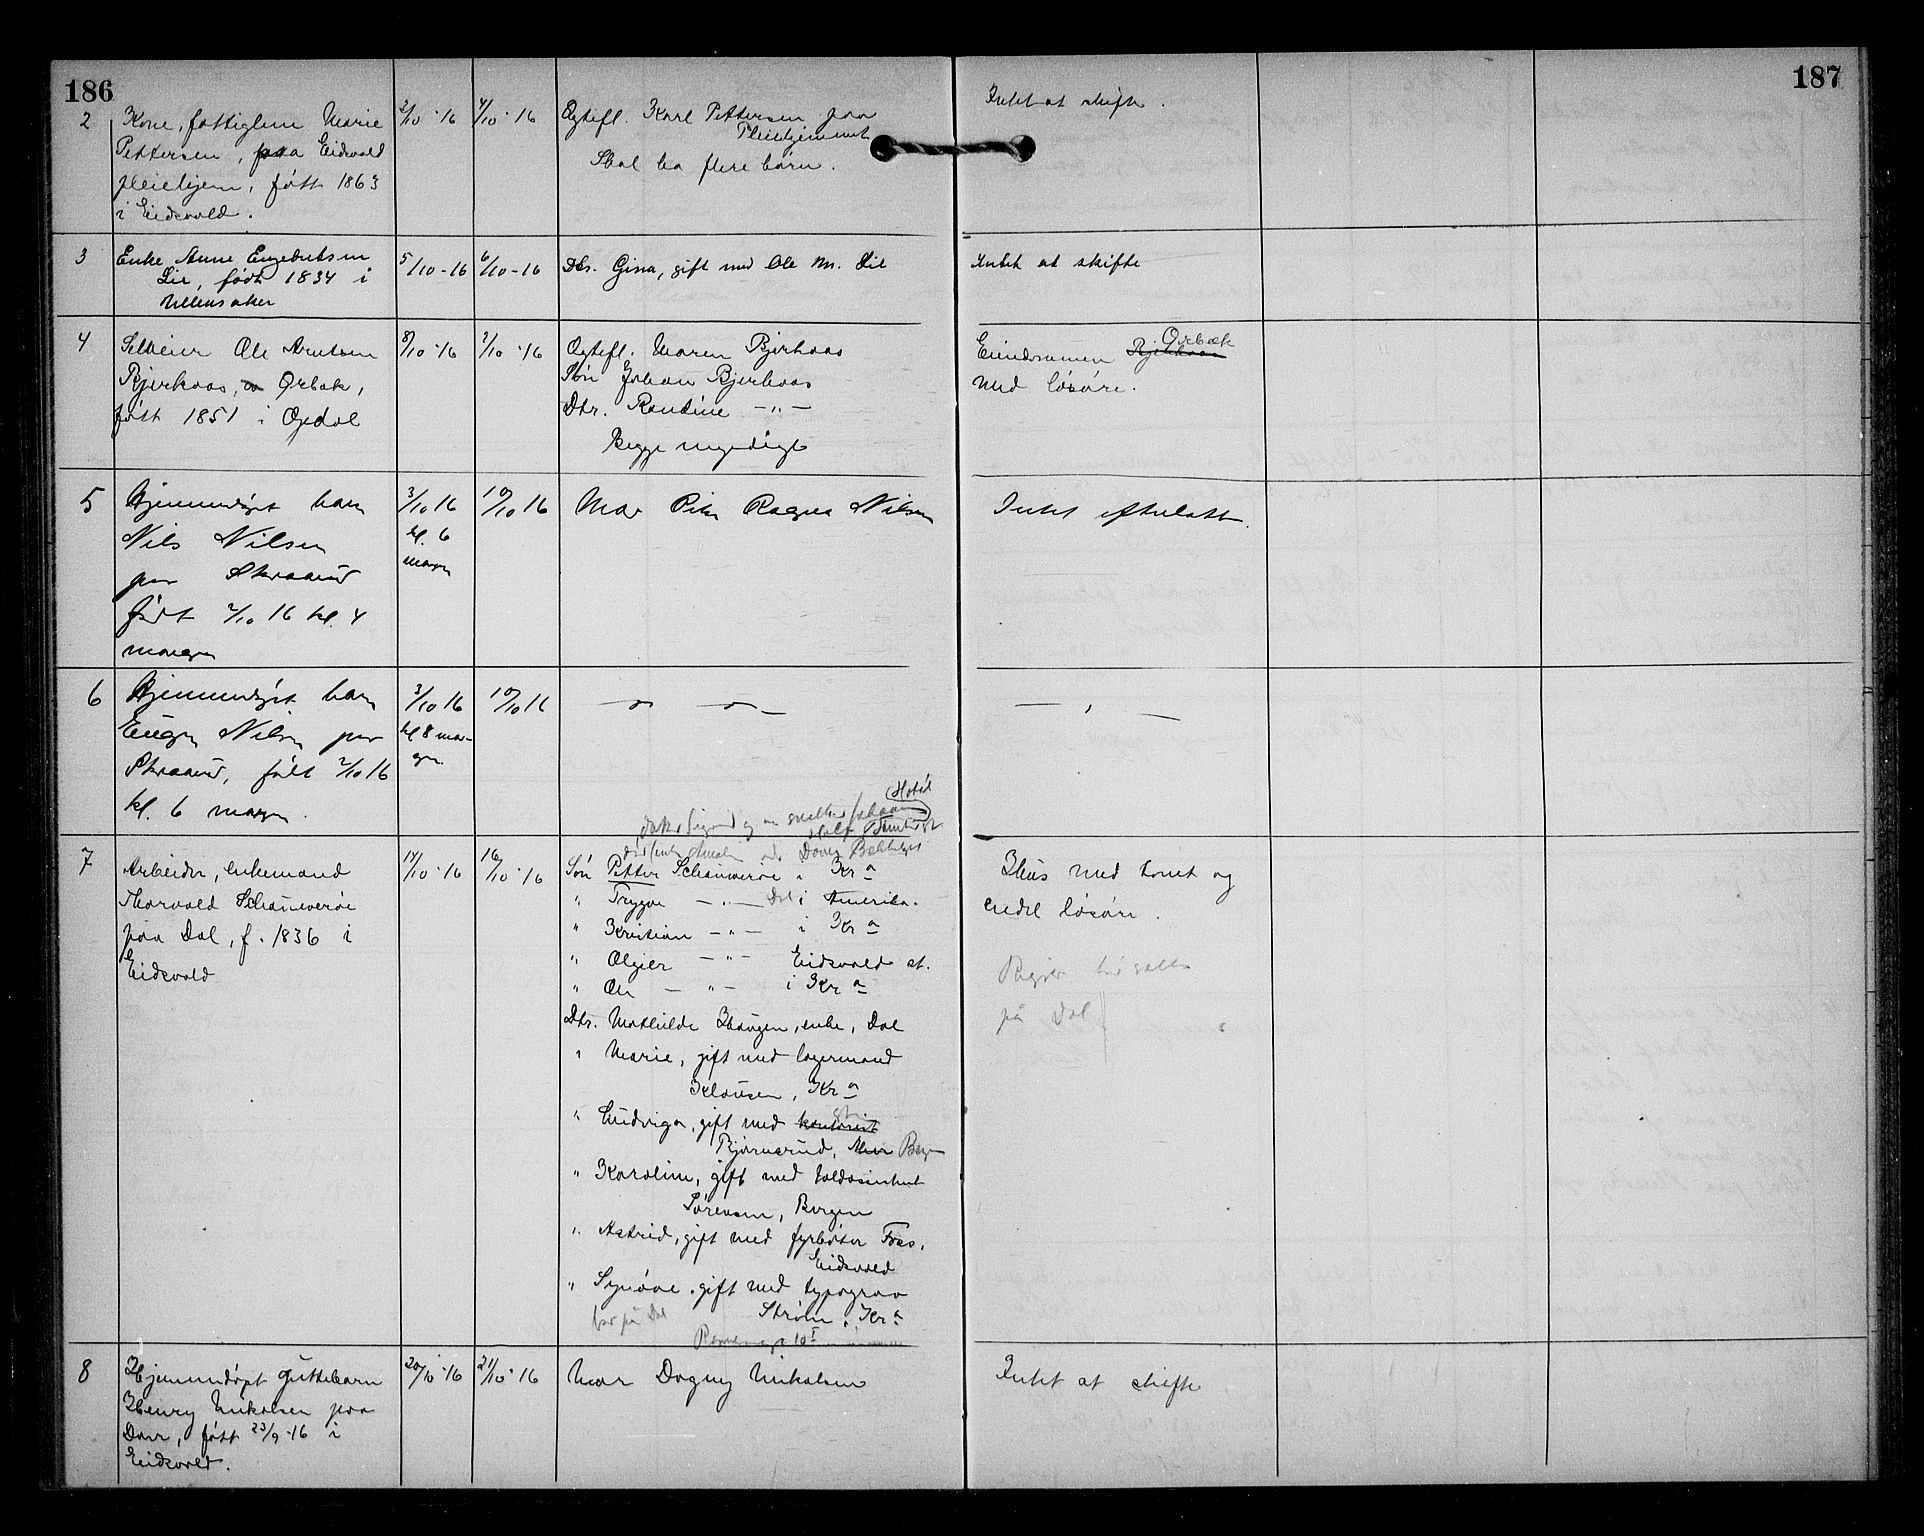 186
187
2 Kone, fattiglem Marie 2/10-16 4/10-16 Egtefl. Karl Pettersen paa Intet at skifte.
Pettersen, paa Eidsvold Pleiehjemmet
pleiehjem, født 1863 Skal ha flere børn.
i Eidsvold.
3 Enke Anne Engebretsen 5/10-16 6/10-16 Dtr. Gina, gift med Ole M. Lie Intet at skifte
Lie, født 1834 i
Ullensaker
4 Selveier Ole Arntsen 8/10-16 Egtefl. Maren Bjerkaas Eiendommen Bjerkaas Ørbæk
Bjerkaas, Ørbæk, Søn Johan Bjerkaas med løsøre.
født 1851 i Opdal Dtr. Randine -"-
Begge myndige
5 Hjemmedøpt barn 3/10 16 10/10 16 Mor Pike Ragna Nilsen Intet efterlatt.
Nils Nilsen kl. 6
paa morgen
født 2/10 16 kl. 4
morgen
6 Hjemmedøpt barn 3/10 16 10/10 16
Eugen Nilsen paa kl 8 mor-
født 2/10 16 gen.
kl. 6 morgen.
Hotel
7 Arbeider, enkemand 14/10-16 16/10-16 Søn Petter Schauverøe i Kr.a Hus med tomt og
Thorvald Schauverøe " Trygve -"- i Amerika. endel løsøre.
paa Dal, f. 1836 i " Kristian -"- i Kr.a
Eidsvold " -"- Eidsvold st.
" Ole -"- i Kr.a
på Dal
Dtr. Mathilde Haugen, enke, Dal
" Marie, gift med lagermand
Klausen, Kr.a
" Ludviga, gift med kontorist
Bjørnerud,
" Karoline, gift med
Sørensen, Bergen
" Astrid, gift med fyrbøter Foss,
Eidsvold
" Synøve, gift med typograv
Strøm i Kr.a
bor på Dal
8 Hjemmedøpt guttebarn 20/10-16 21/10-16 Mor Dagny Mikalsen Intet at skifte
Henry Mikalsen paa
født 23/9-16 i
Eidsvold.